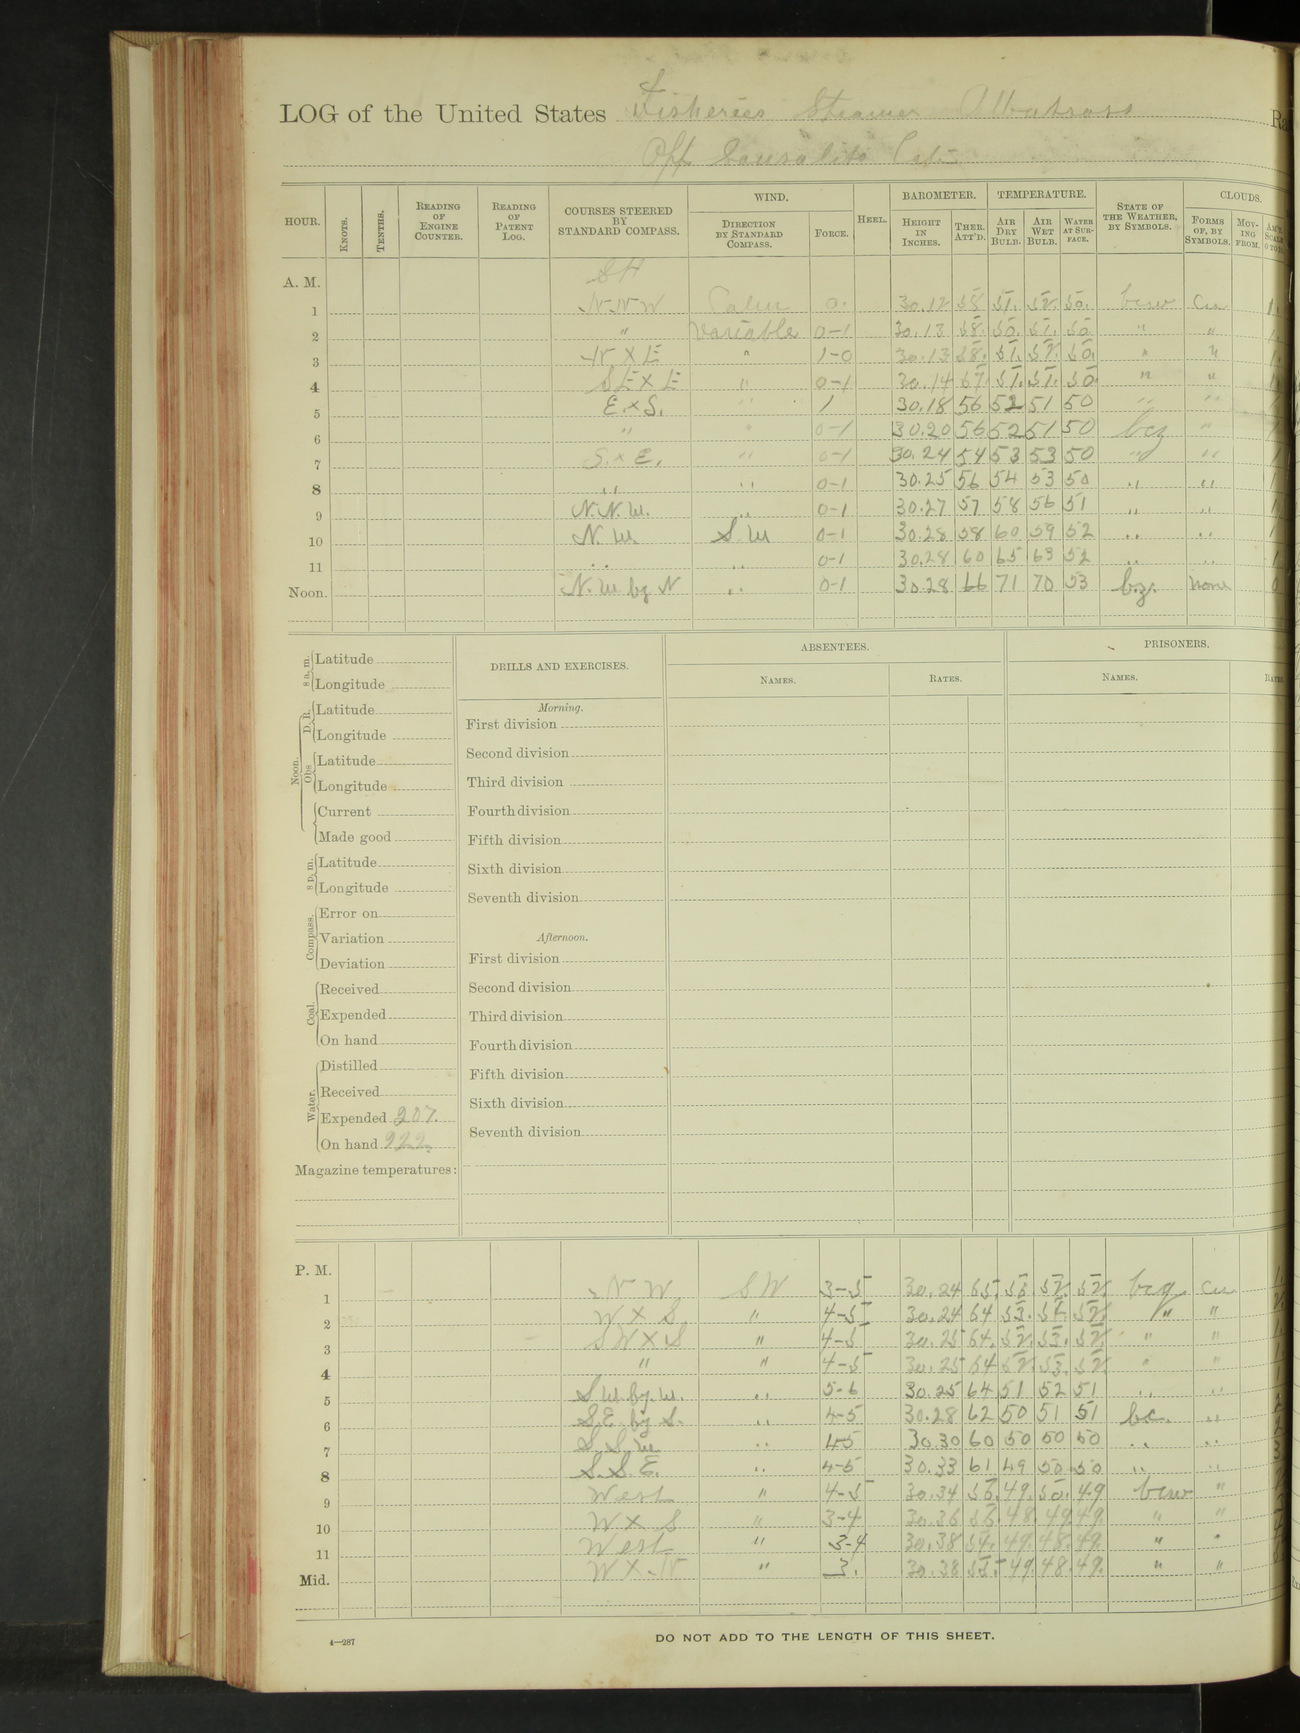 LOG of the United States Fisheries Steamer Albatross Ra
Off Sausalito Cal
HOUR. KNOTS. TENTHS. READING OF ENGINE COUNTER. READING OF PATENT LOG. COURSES STEERED BY STANDARD COMPASS. WIND. DIRECTION BY STANDARD COMPASS. FORCE. HEEL. BAROMETER. HEIGHT IN INCHES. THER. ATT'D. TEMPERATURE. AIR DRY BULB. AIR WET BULB. WATER AT SURFACE. STATE OF THE WEATHER, BY SYMBOLS. CLOUDS. FORMS OF, BY SYMBOLS. MOVING FROM.
A. M.
1 N.N.W Calm 0. 30.12 58 51. 52. 50. bcw Cu 1.
2 " Variable 0-1 30.13 58. 50. 51. 50 " " 1.
3 N X E " 1-0 30.13 58. 51. 52. 50. " " 1.
4 SE X E " 0-1 30.14 57. 51. 51. 50 " " 1
5 E. x S. " 1 30.18 56 52 51 50 " "
6 " " 0-1 30.20 56 52 51 50 bcz " 1
7 S. x E. " 0-1 30.24 54 53 53 50 " " 1
8 " " 0-1 30.25 56 54 53 50 " " 1
9 N.N.W. " 0-1 30.27 57 58 56 51 " " 1
10 N.W. S.W 0-1 30.28 58 60 59 52 " " 1
11 " " 0-1 30.28 60 65 63 52 " " 1
Noon. N.W by N " 0-1 30.28 66 71 70 53 b.z. none 0
8 a. m. Latitude
Longitude
Noon. D. R. Latitude
Longitude
Obs. Latitude
Longitude
Current
Made good
8 p. m. Latitude
Longitude
Compass. Error on
Variation
Deviation
Coal. Received
Expended
On hand
Water. Distilled
Received
Expended 207.
On hand 922.
Magazine temperatures:
DRILLS AND EXERCISES.
Morning.
First division
Second division
Third division
Fourth division
Fifth division
Sixth division
Seventh division
Afternoon.
First division
Second division
Third division
Fourth division
Fifth division
Sixth division
Seventh division
ABSENTEES.
NAMES. RATES.
PRISONERS.
NAMES. RATES
P. M.
1 N W SW 3-5 30.24 65. 53 52 52 bcq Cu 1.
2 W X S " 4-5 30.24 64 53. 52. " "
3 SW X S " 4-5 30.25 64. 52. 53. 52. " " 1.
4 " " 4-5 30.25 64 52 53. 52 " " 1
5 S.W. by W. " 5-6 30.25 64 51 52 51 " " 2
6 S.E. by S. " 4-5 30.28 62 50 51 51 bc. " 2
7 S.S.W " 4-5 30.30 60 50 50 50 " " 3
8 S.S.E. " 4-5 30.33 61 49 50 50 " " 2
9 West " 4-5 30.34 56. 49. 50. 49 bcw "
10 W X S " 3-4 30.36 56. 48. 49. 49. " "
11 West " 3-4 30.38 54. 49. 48. 49. " "
Mid. W X N " 3. 30.38 55. 49. 48. 49. " "
4—287
DO NOT ADD TO THE LENGTH OF THIS SHEET.